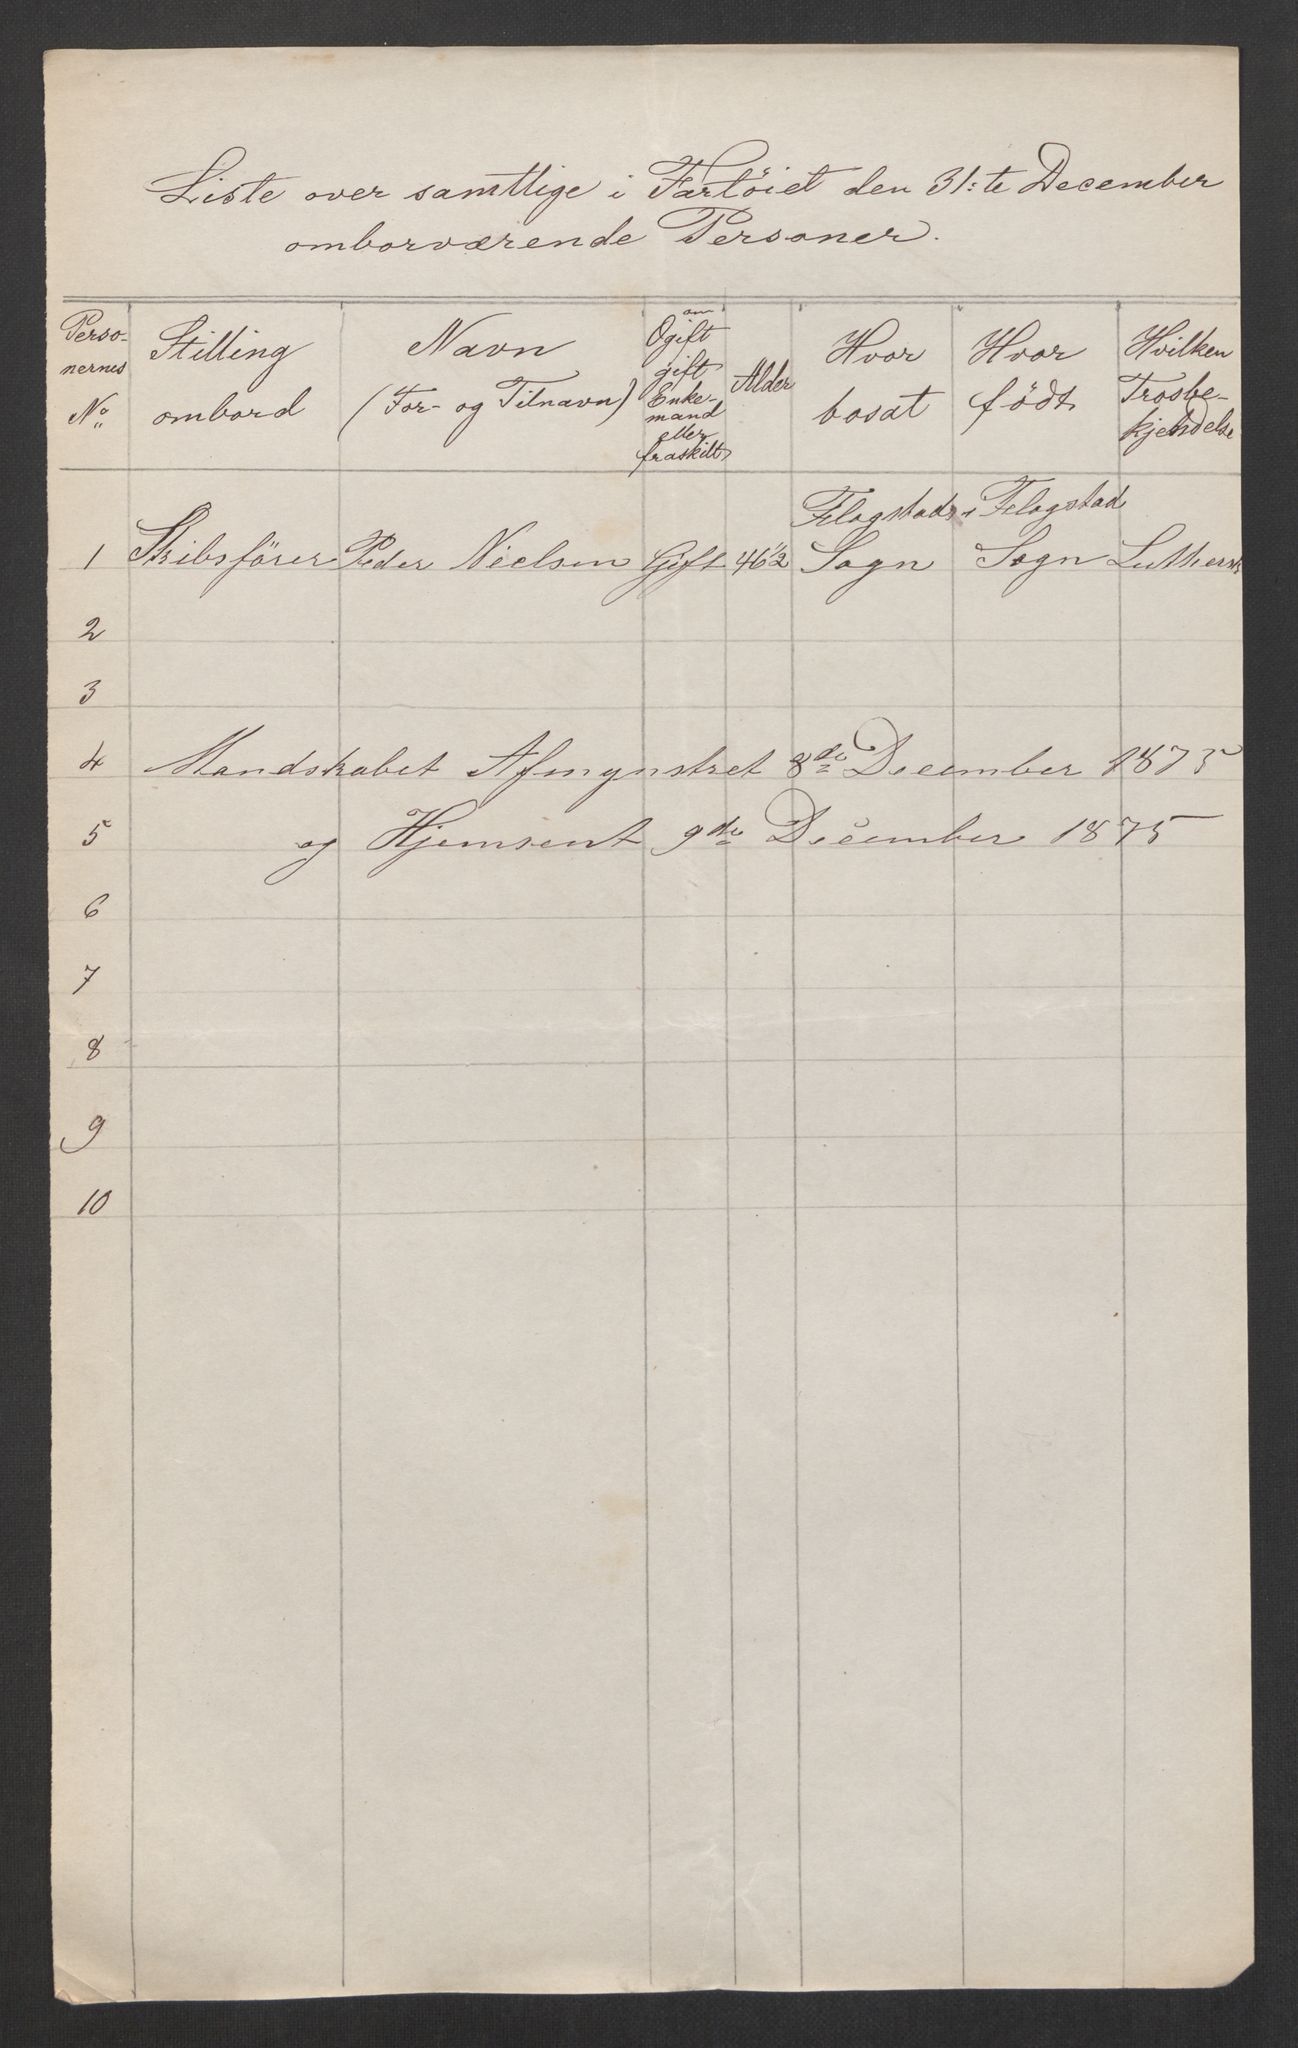 Liste over samtlige i Fartöiet den 31:te December
omborværende Personer.
Perso-
nernes
No
Stilling
ombord
Navn
(For- og Tilnavn)
om
Ogift
gift
Enke-
mand
eller
fraskilt
Alder
Hvor
bosat
Hvor
födt
Hvilken
Trosbe-
kjendelse
1 Skibsförer Peder Nielsen Gift 46 1/2 Flogstad Sogn Flogstad Sogn Luthersk
2
3
4 Mandskabet Afmynstret 8de December 1875
5 og Hjemsent 9de December 1875
6
7
8
9
10